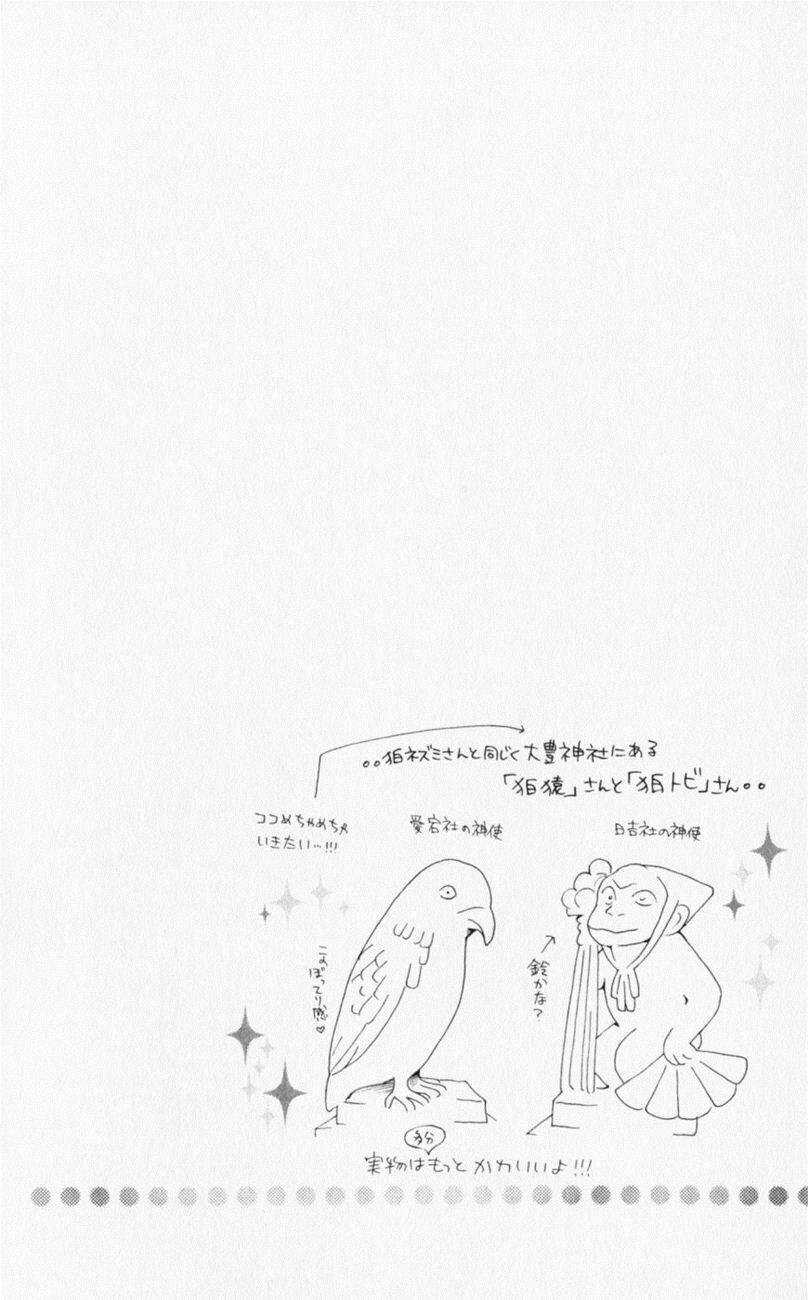 。。狛ネズミさんと同じく大豊神社にある
「狛猿」さんと「狛トビ」さん。。
ココめちゃめちゃ
いきたい…!!!
日吉社の神使
愛宕社の神使
鈴かな?
この
ぼってり感♡
多分
実物はもっとかわいいよ!!!